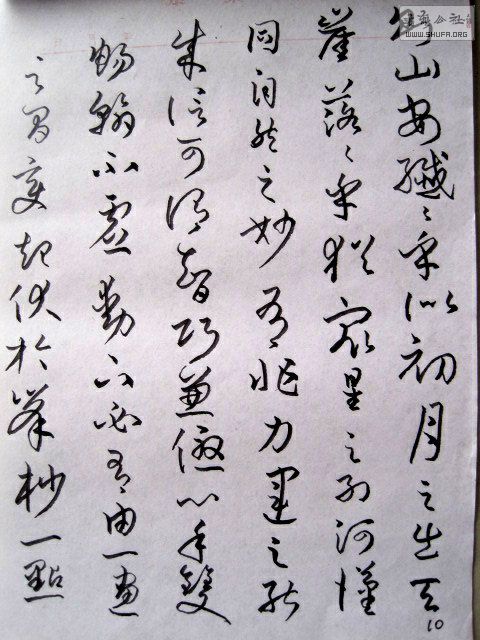 山安纖〻乎似初月之出天
崖落〻乎猶衆星之列河漢
同自然之妙有非力運之能
成信可謂智巧兼優心手雙
暢翰不虛動下必有由一畫
之間變起伏於峯杪一點
10
公社
WWW.SHUFA.ORG